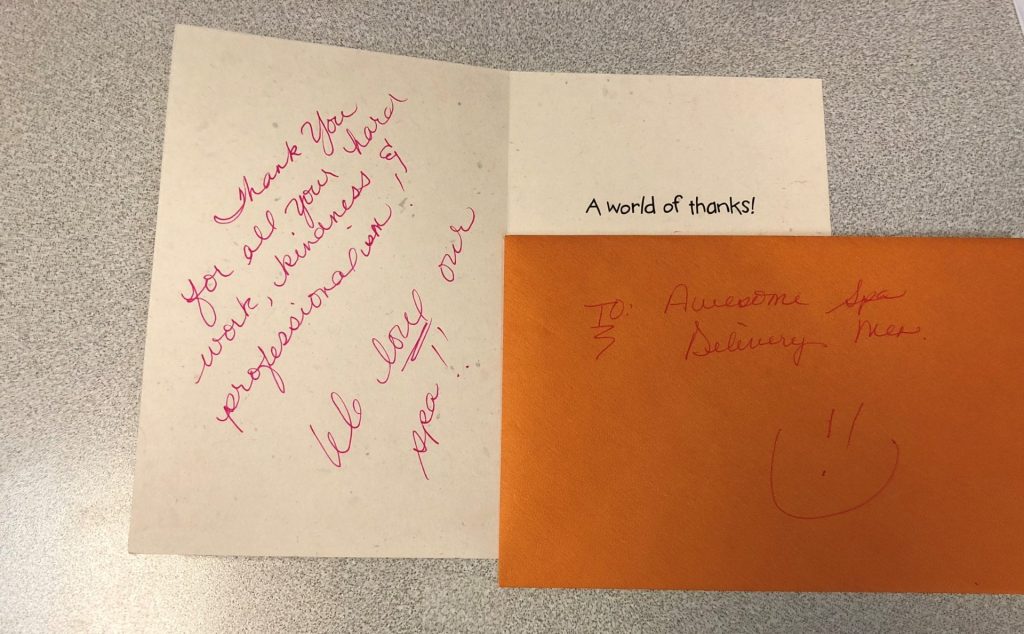 Thank You
for all your hard
work, kindness &
professionalism!!
We love our
spa!!
A world of thanks!
To: Awesome Spa
3 Delivery Men.